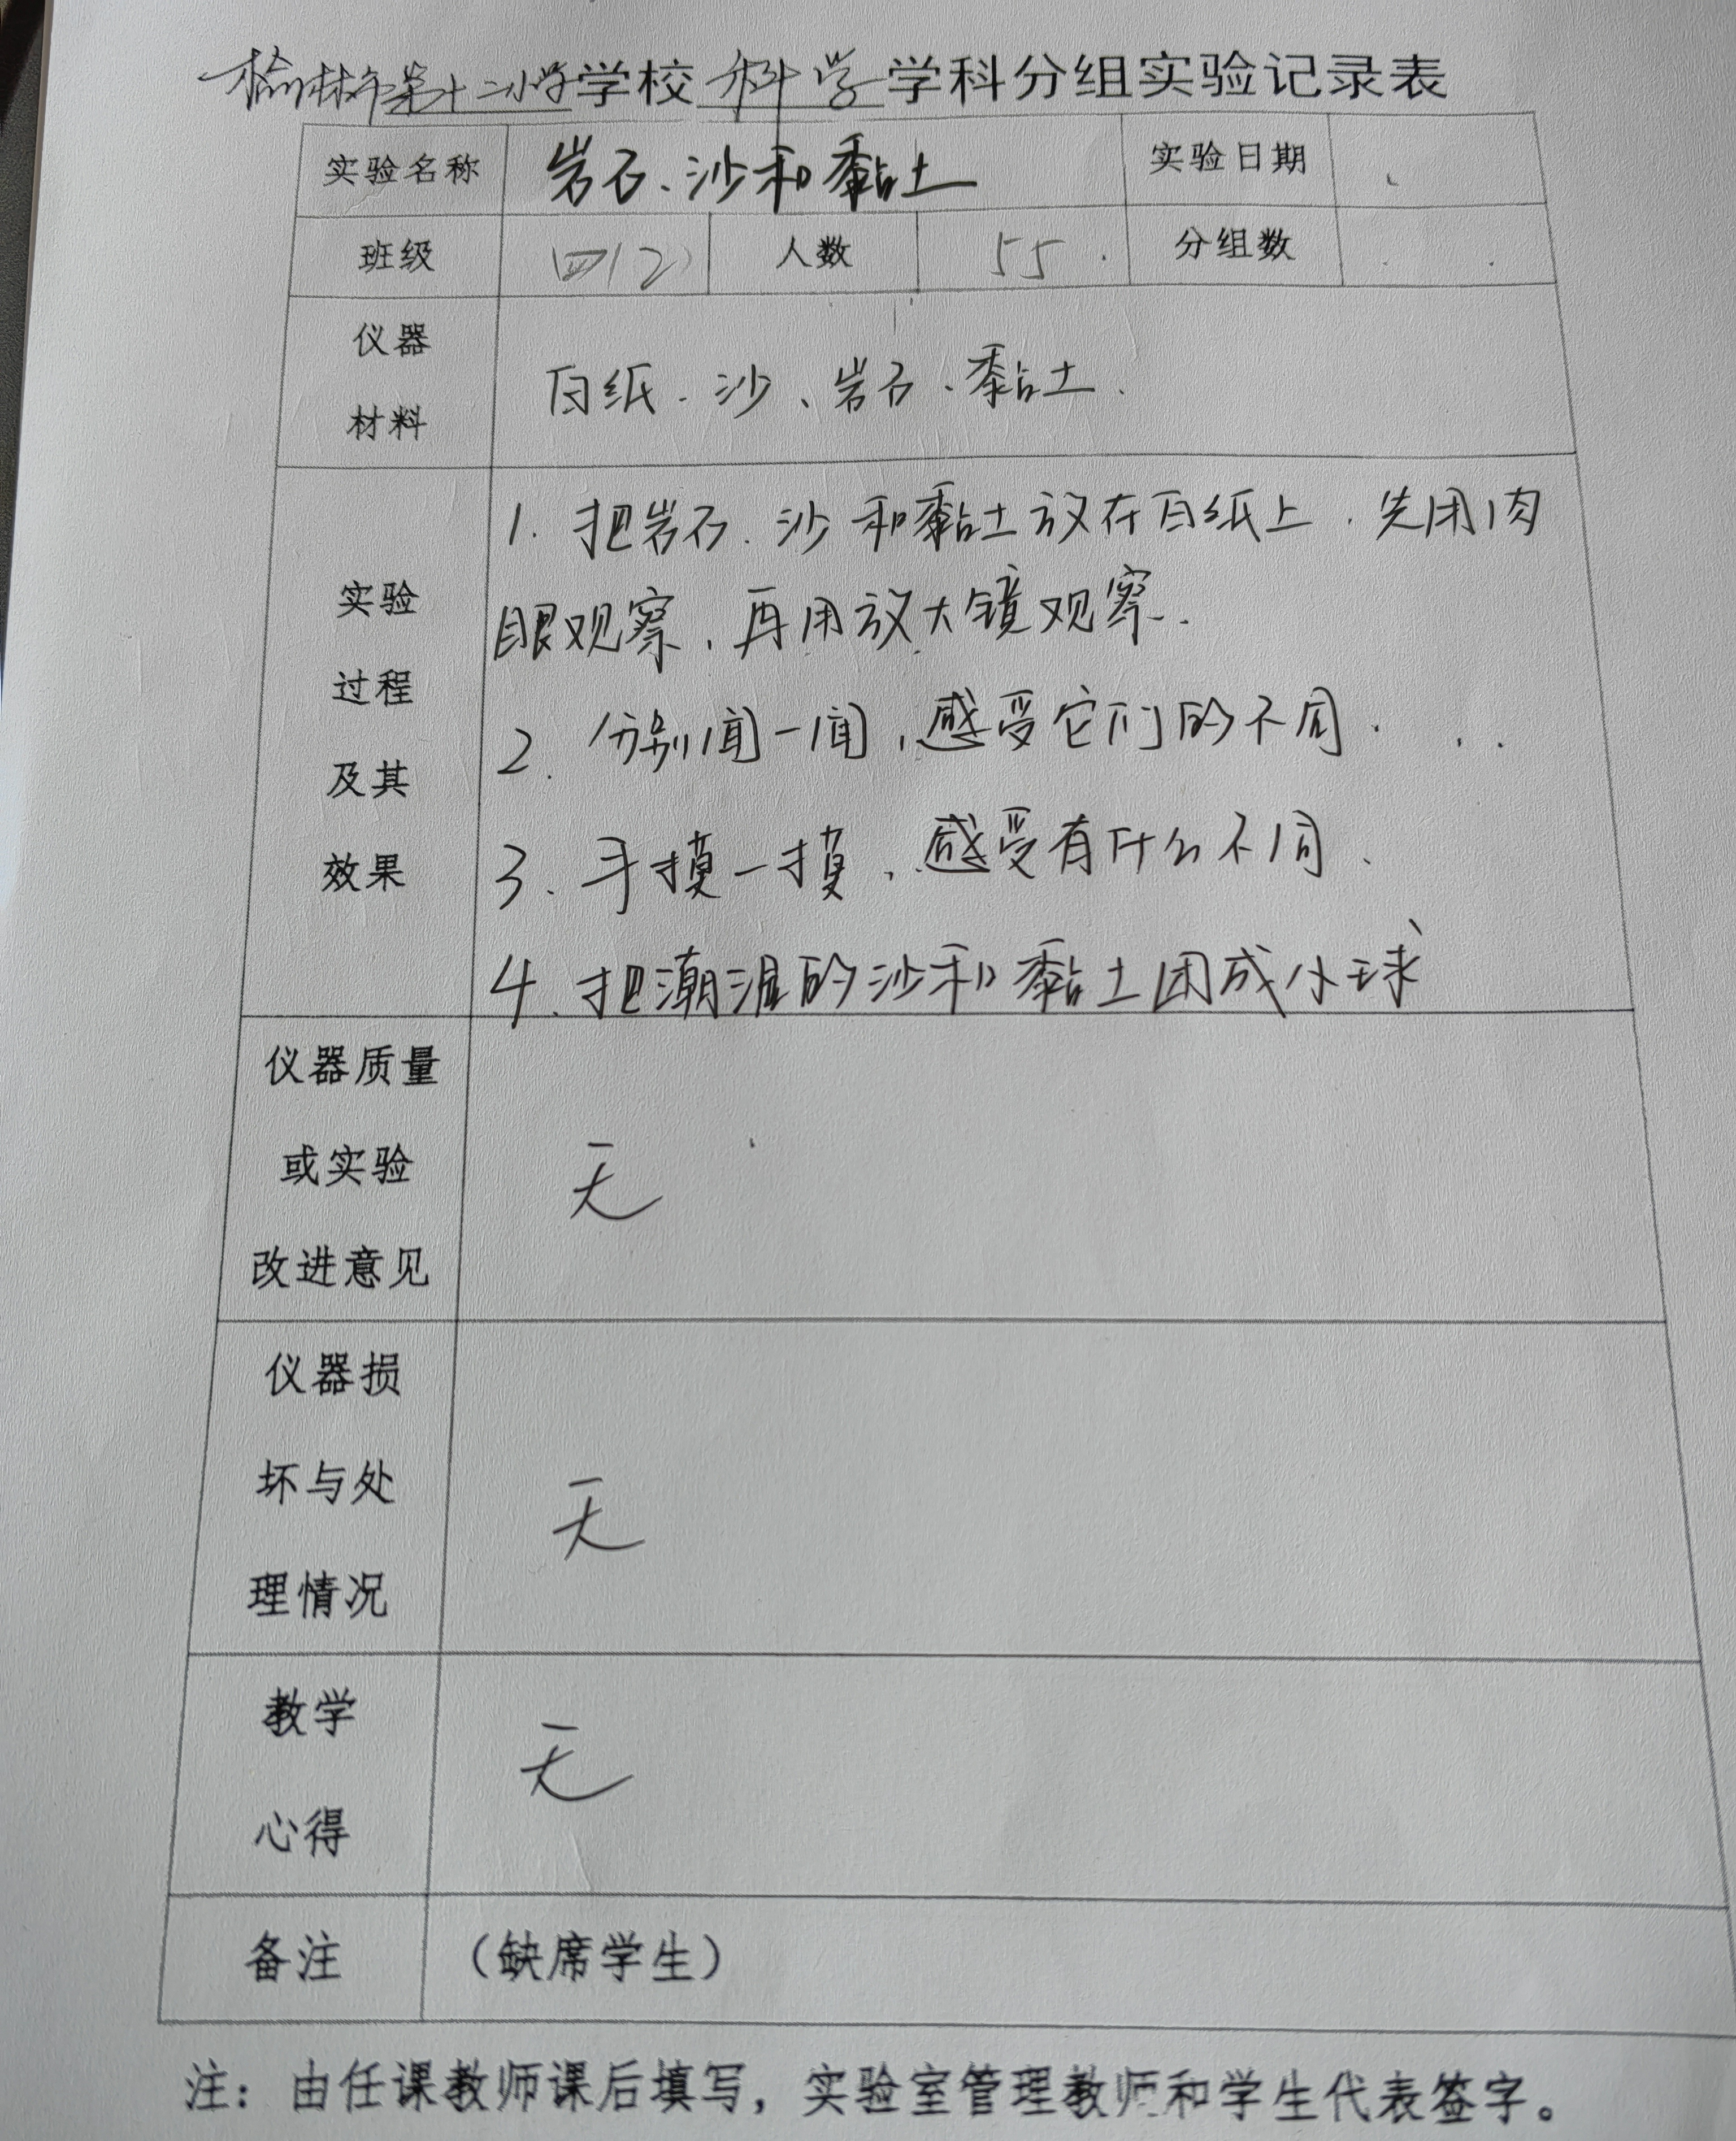 榆林市第十二小学学校科学学科分组实验记录表
实验名称 岩石、沙和黏土 实验日期
班级 四(2) 人数 55 分组数
仪器
材料
白纸、沙、岩石、黏土.
实验
过程
及其
效果
1. 把岩石、沙和黏土放在白纸上,先用肉
眼观察,再用放大镜观察.
2. 分别闻一闻,感受它们的不同.
3. 手摸一摸,感受有什么不同.
4. 把潮湿的沙和黏土团成小球
仪器质量
或实验
改进意见
无
仪器损
坏与处
理情况
无
教学
心得
无
备注 (缺席学生)
注:由任课教师课后填写,实验室管理教师和学生代表签字。